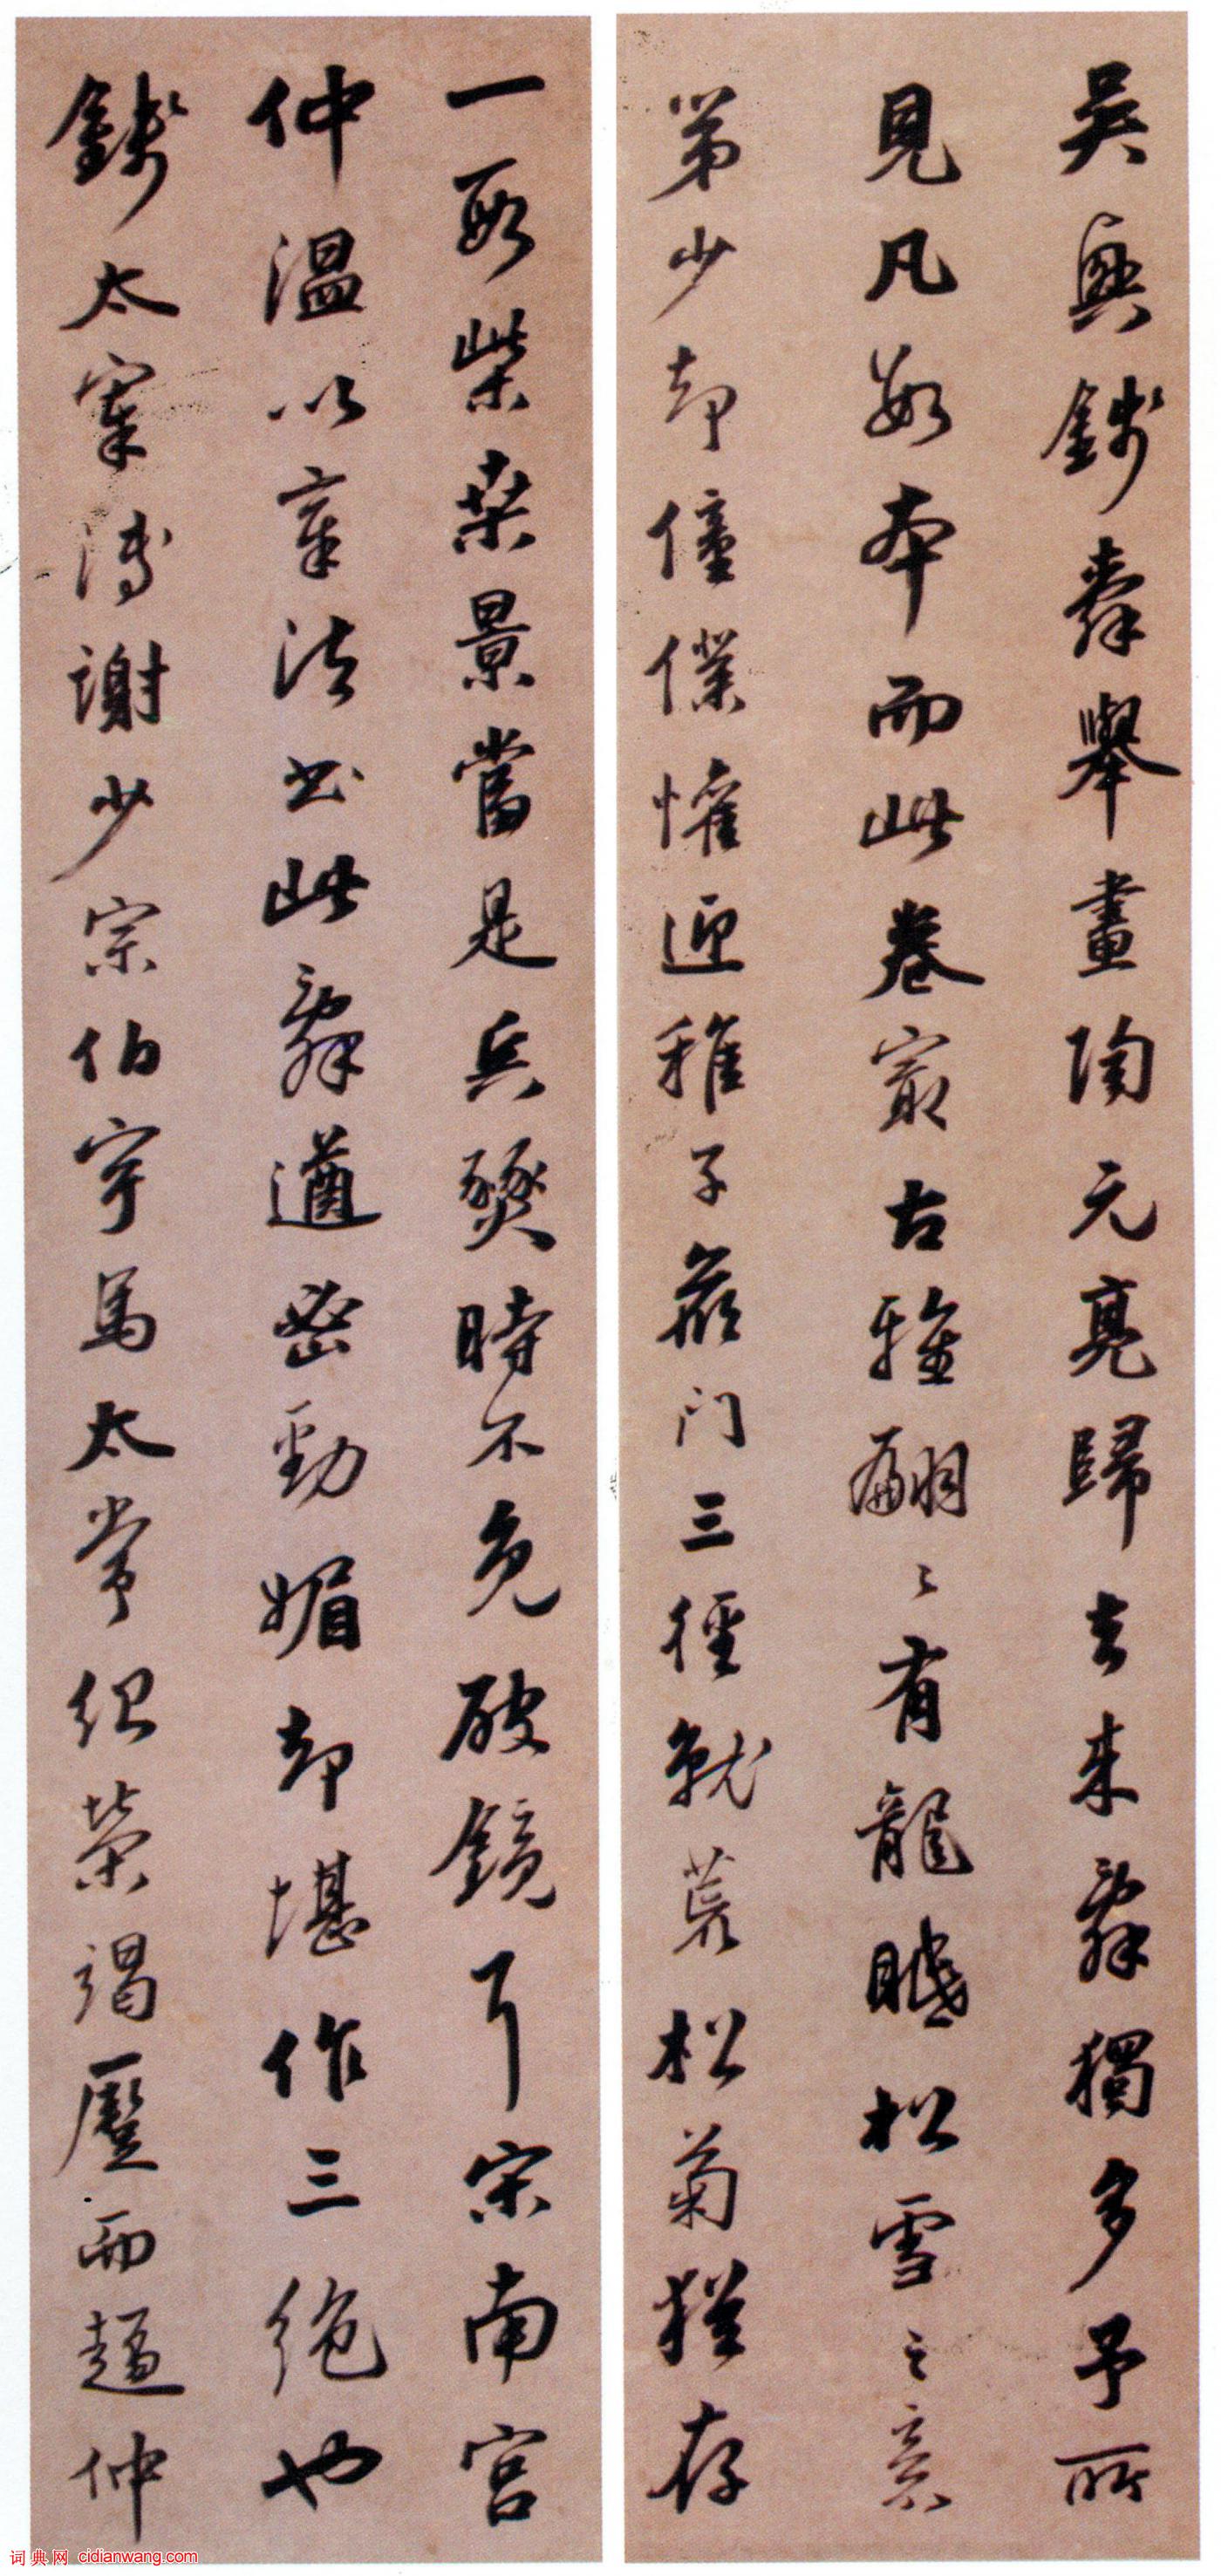 吳興錢舜舉畫陶元亮歸去來辭獨多予所
見凡數本而此卷寂古雅翩〻有龍眠松雪之意
第少却僮僕懽迎稚子候門三徑就荒松菊猶存
一段柴桑景當是兵燹時不免破鏡耳宋南宮
仲溫以章法書此辭遒密勁媚却堪作三絕也
錢太宰溥謝少宗伯宇馬太常紹榮謁蹙而趨仲
词典网 cidianwang.com